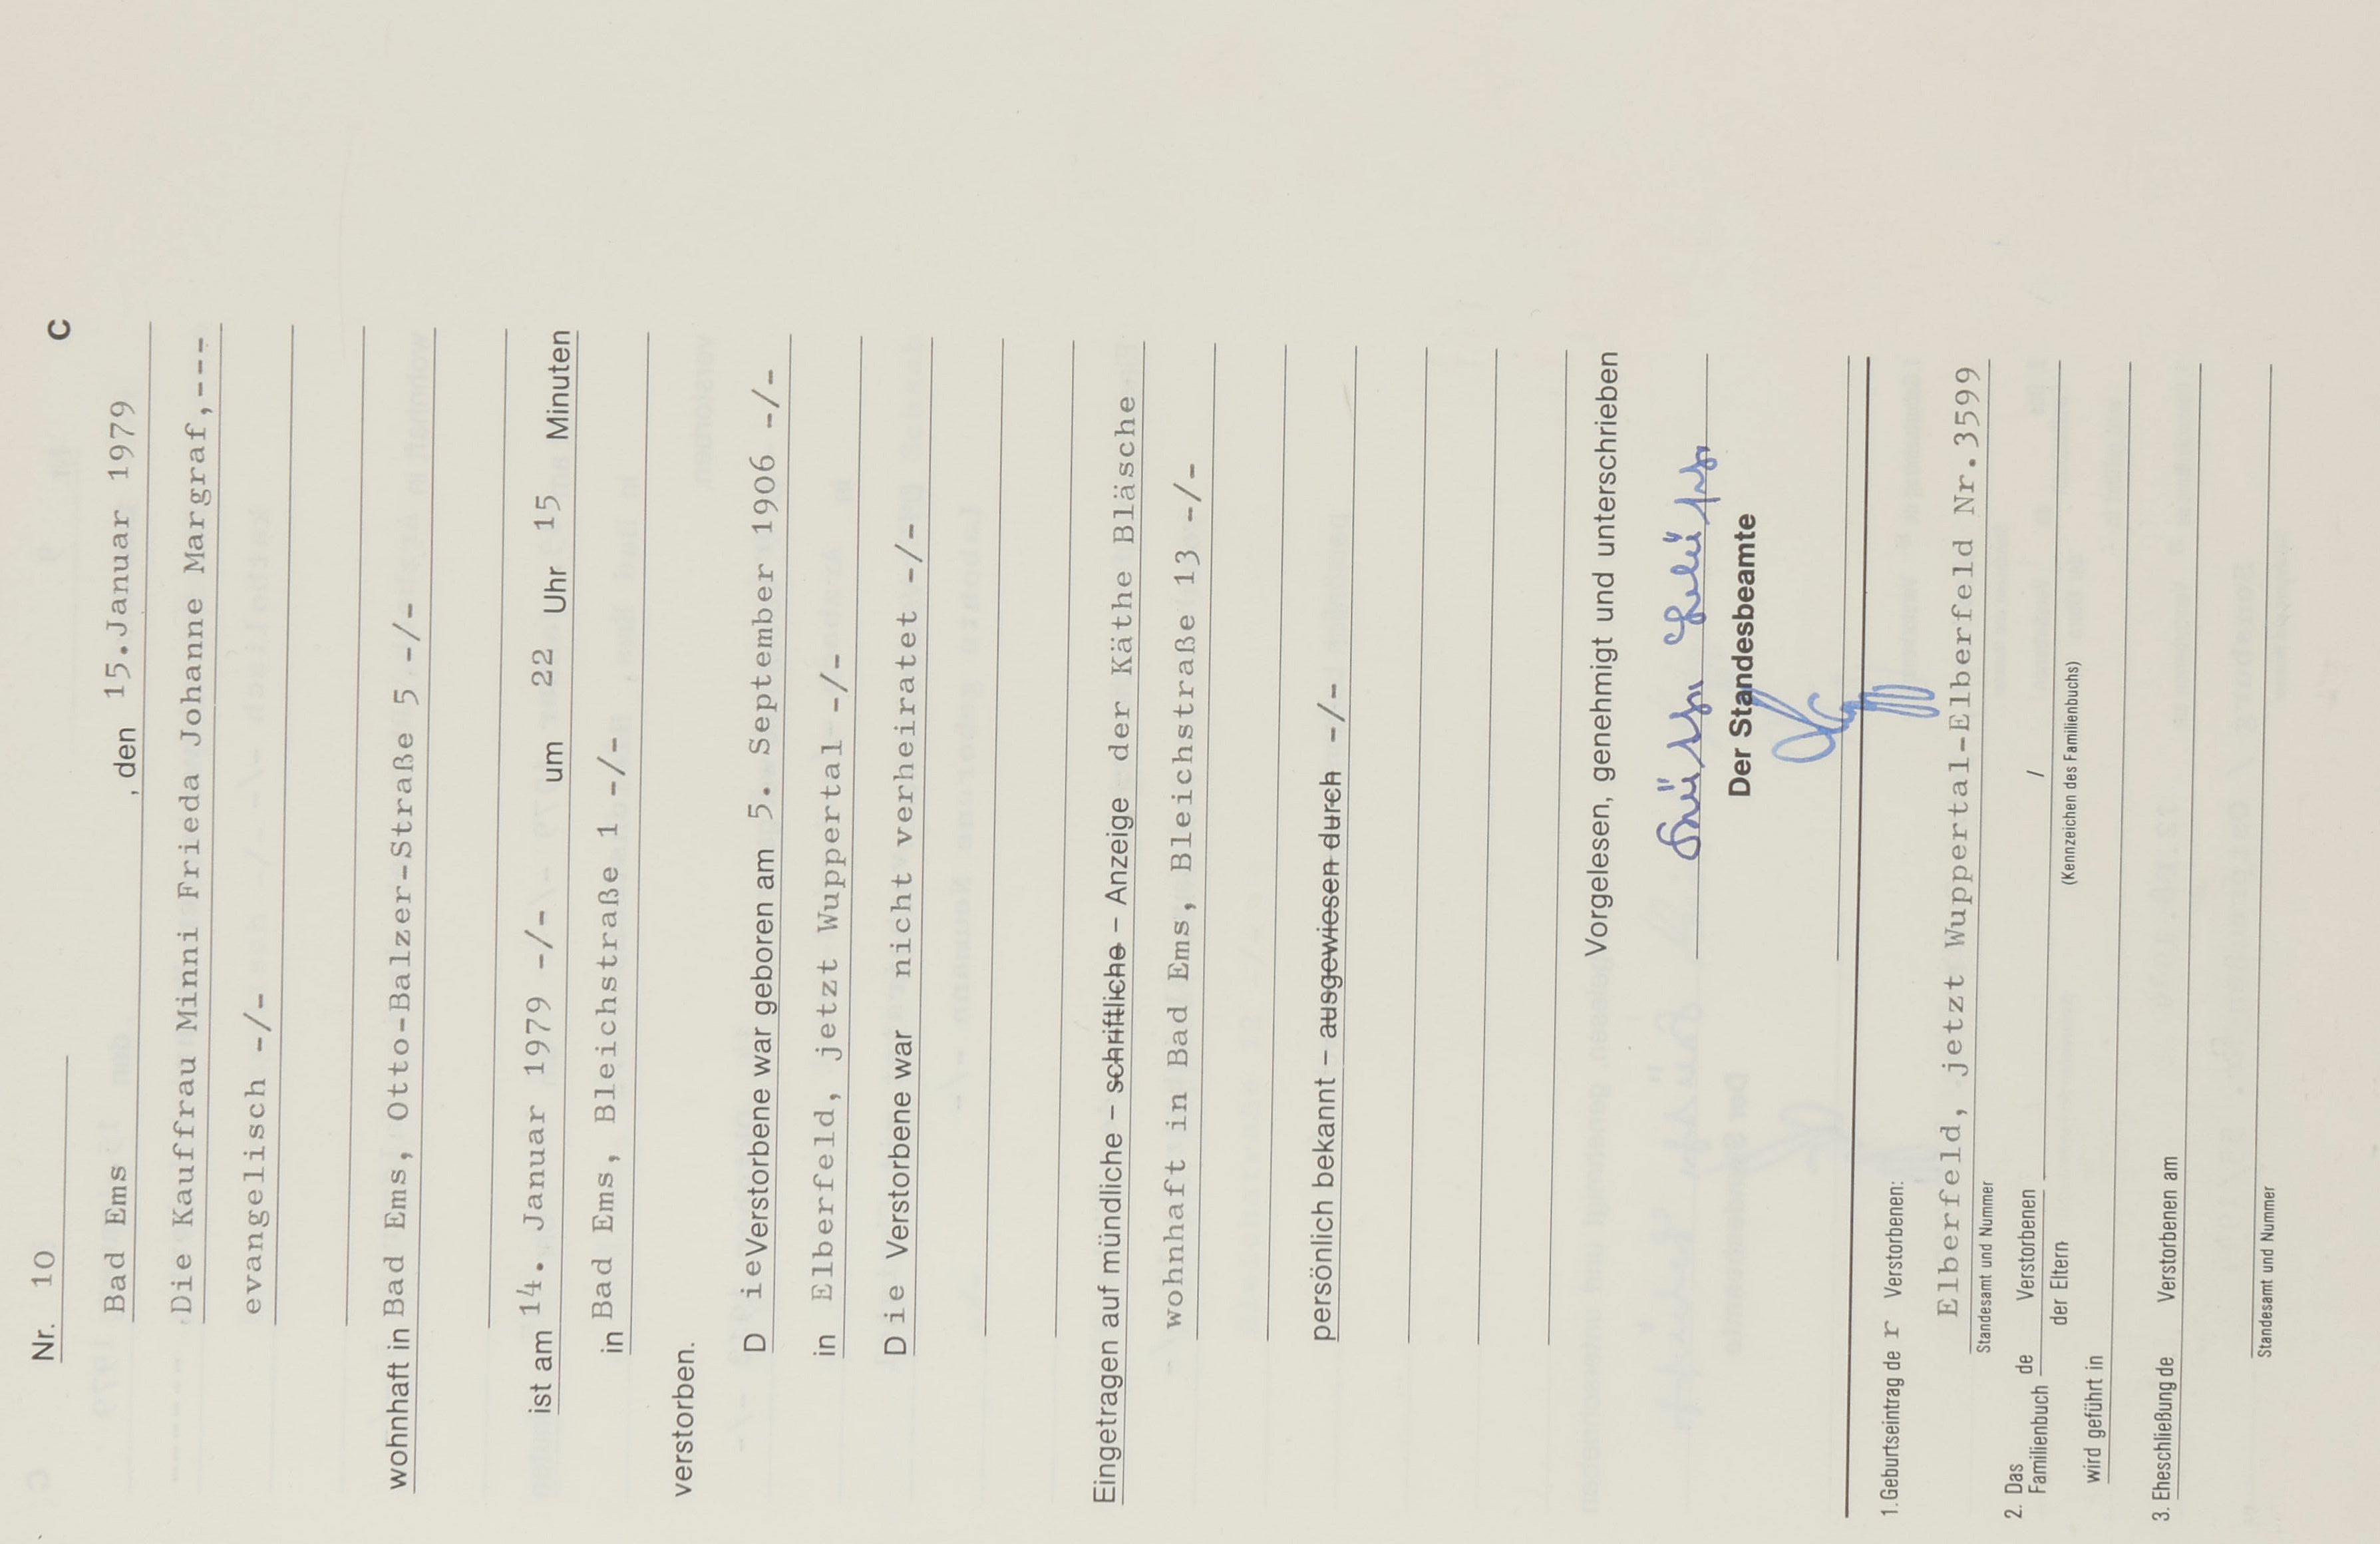 Nr. 10 C
Bad Ems , den 15.Januar 1979
Die Kauffrau Minni Frieda Johanne Margraf,---
evangelisch -/-
wohnhaft in Bad Ems, Otto-Balzer-Straße 5 -/-
ist am 14. Januar 1979 -/- um 22 Uhr 15 Minuten
in Bad Ems, Bleichstraße 1 -/-
verstorben.
D ie Verstorbene war geboren am 5. September 1906 -/-
in Elberfeld, jetzt Wuppertal -/-
D ie Verstorbene war nicht verheiratet -/-
Eingetragen auf mündliche – schriftliche – Anzeige der Käthe Bläsche
wohnhaft in Bad Ems, Bleichstraße 13 -/-
persönlich bekannt – ausgewiesen durch -/-
Vorgelesen, genehmigt und unterschrieben
Der Standesbeamte
1. Geburtseintrag de r Verstorbenen:
Elberfeld, jetzt Wuppertal-Elberfeld Nr.3599
Standesamt und Nummer
2. Das Familienbuch de Verstorbenen /
der Eltern (Kennzeichen des Familienbuchs)
wird geführt in
3. Eheschließung de Verstorbenen am
Standesamt und Nummer